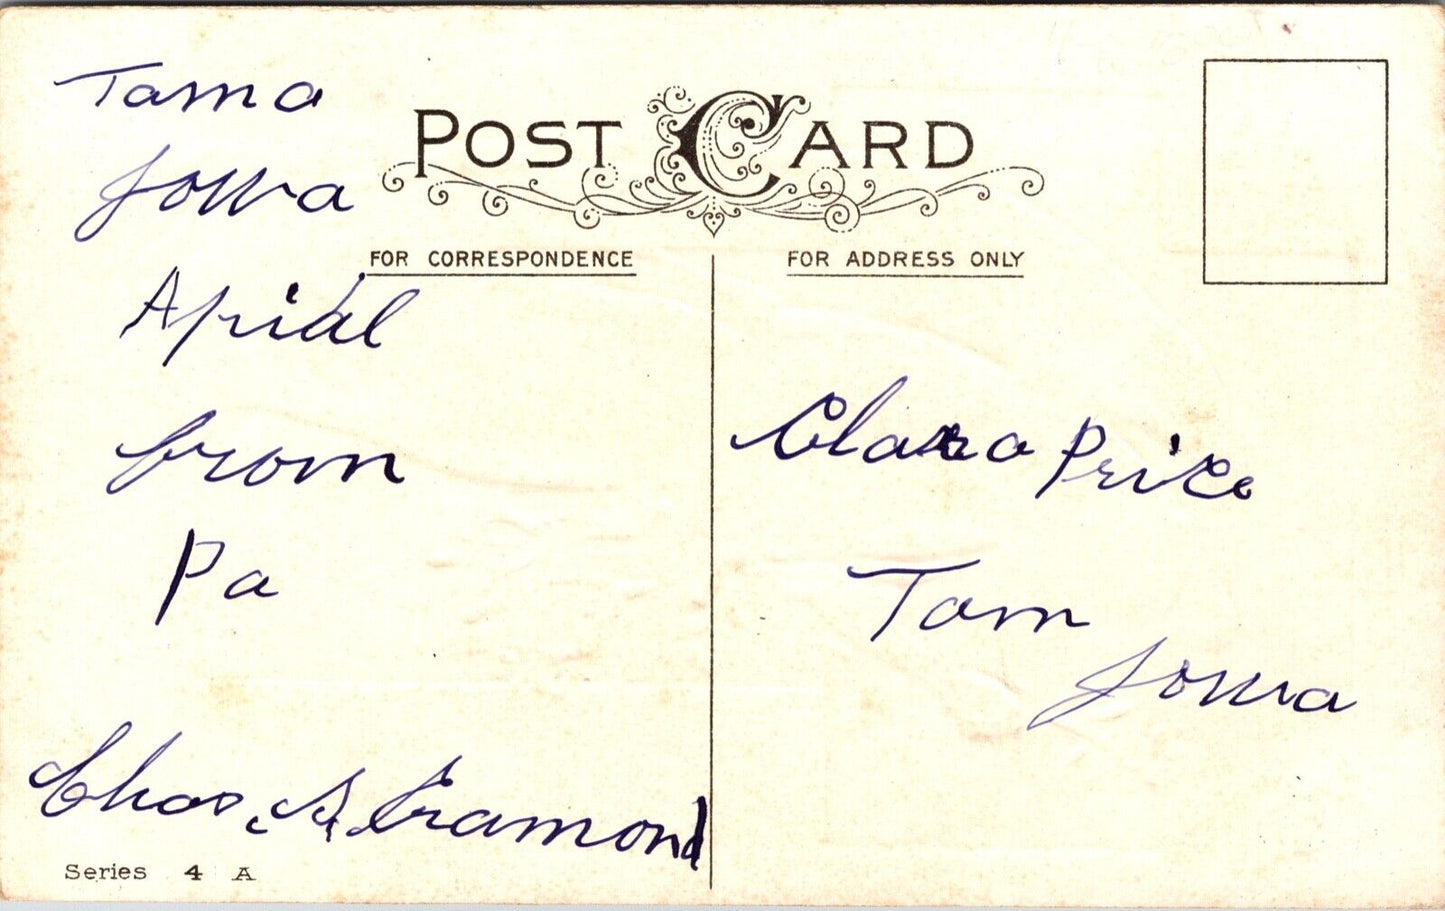 POST CARD
FOR CORRESPONDENCE
FOR ADDRESS ONLY
Tama
Iowa
Apriāl
from
Pa
Chas. A.
Clara Price
Tam
Iowa
Series 4 A